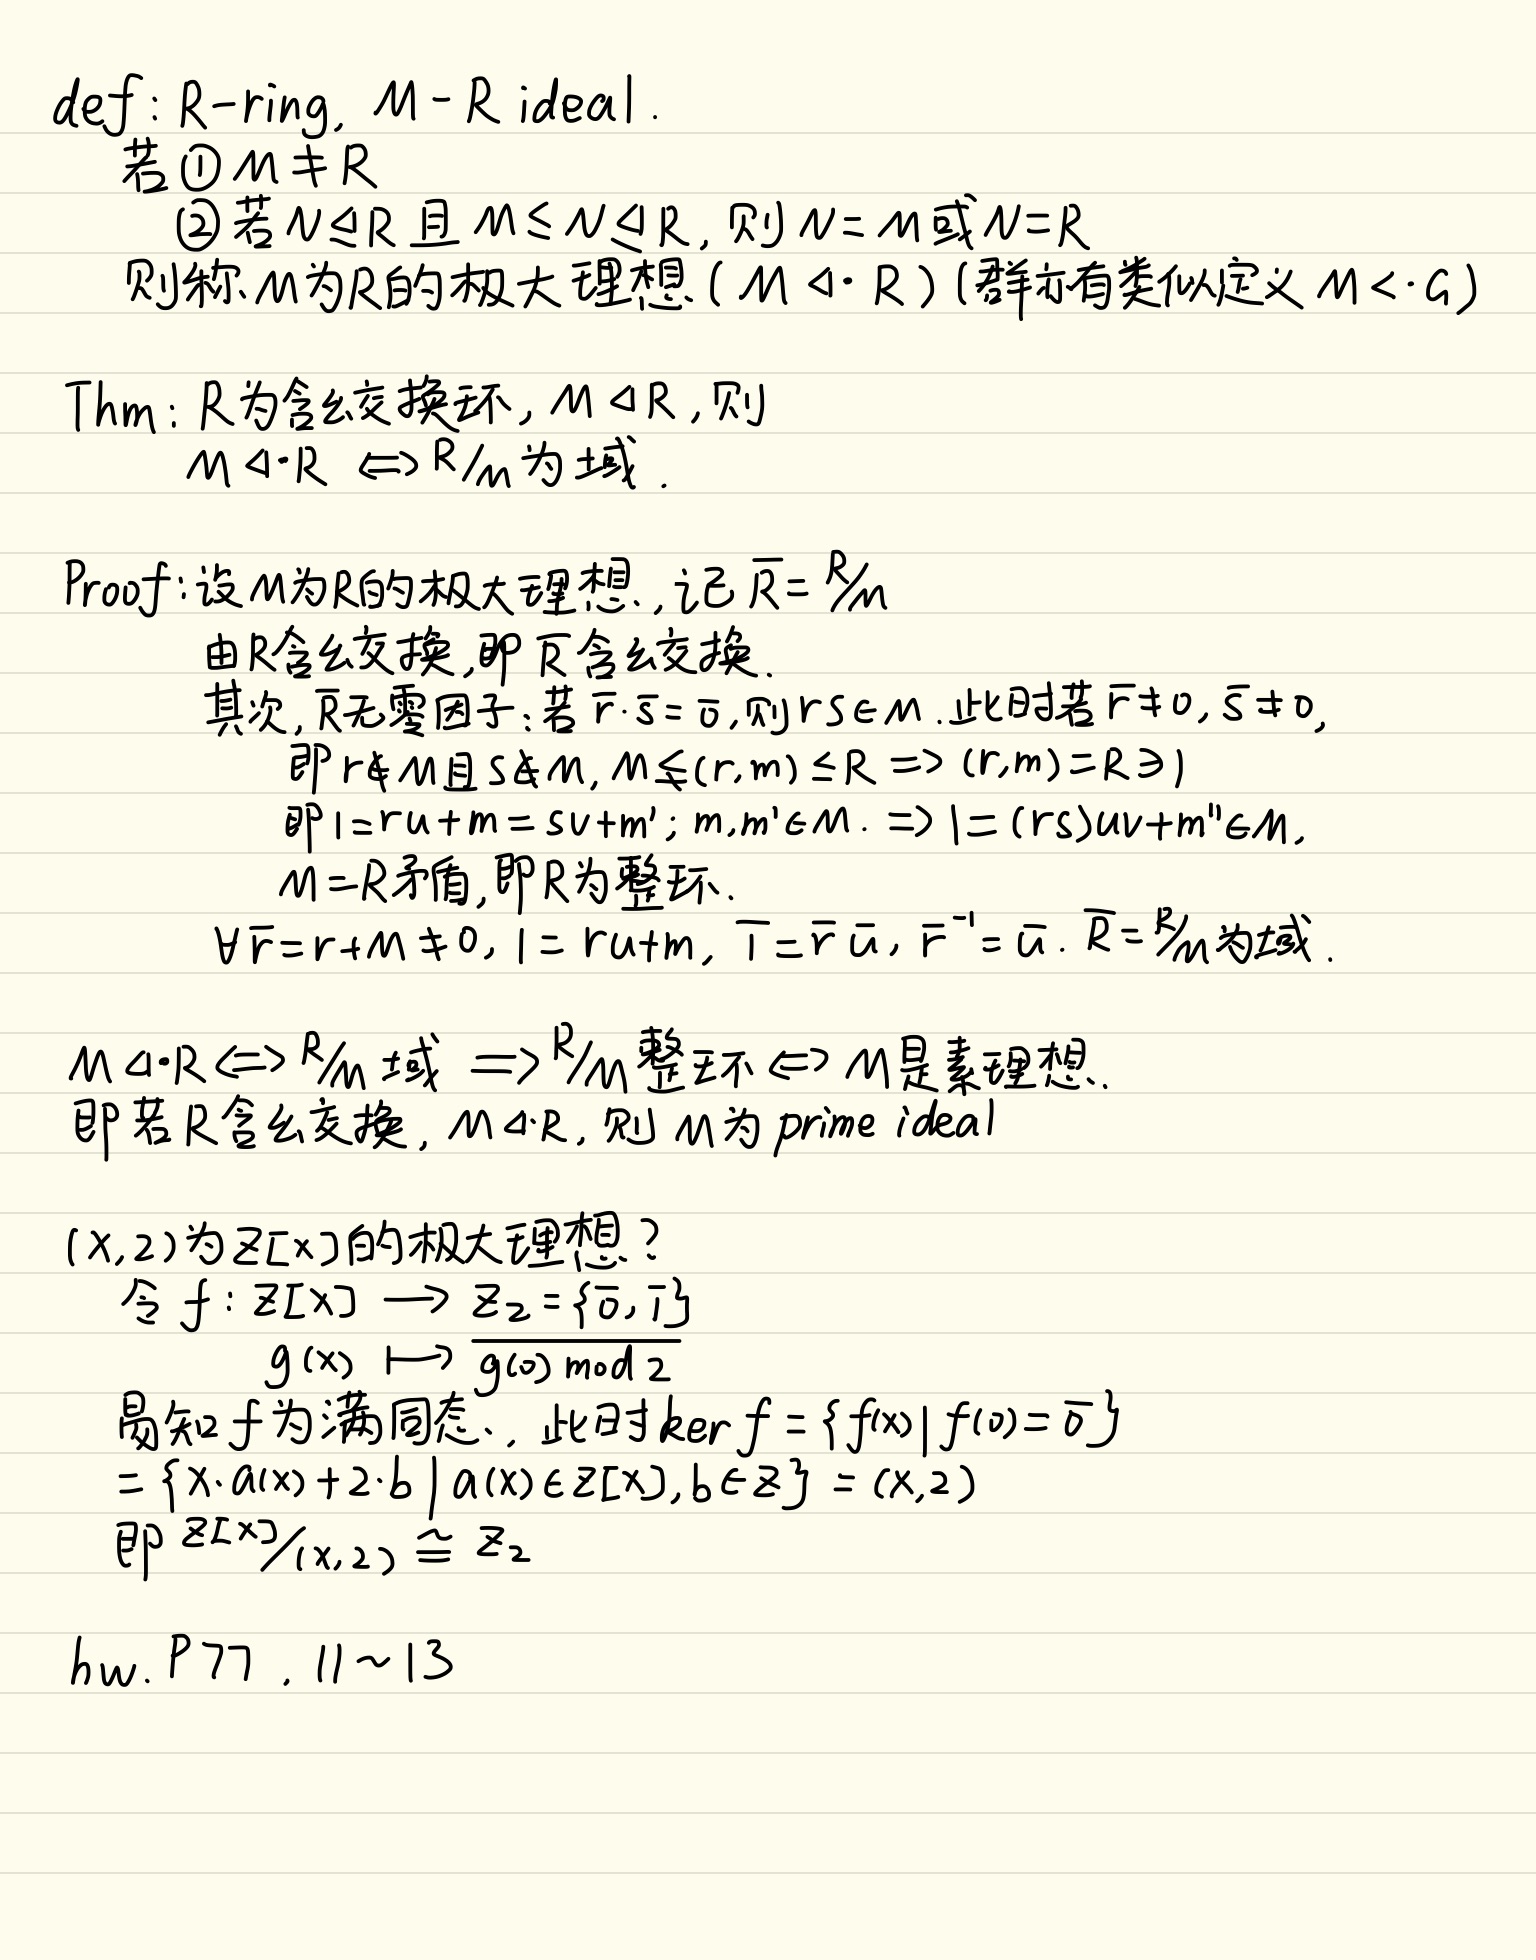 def: R-ring, M-R ideal.
若① M≠R
② 若 N⊴R 且 M≤N⊴R, 则 N=M 或 N=R
则称 M为R的极大理想 (M ⊲· R) (群亦有类似定义 M<·G)
Thm: R为含幺交换环, M⊲R, 则
M⊲·R ⇔ R/M 为域.
Proof: 设M为R的极大理想, 记 R̄ = R/M
由R含幺交换, 即 R̄ 含幺交换.
其次, R̄无零因子: 若 r̄·s̄=0̄, 则 rs∈M. 此时若 r̄≠0, s̄≠0,
即 r∉M且s∉M, M≨(r,m)≤R ⇒ (r,m)=R∋1
即 1=ru+m=sv+m'; m,m'∈M. ⇒ 1=(rs)uv+m''∈M,
M=R矛盾, 即R为整环.
∀r̄=r+M≠0, 1=ru+m, 1̄=r̄ū, r̄⁻¹=ū. R̄=R/M为域.
M⊲·R⇔R/M 域 ⇒ R/M 整环 ⇔ M是素理想.
即若R含幺交换, M⊲·R, 则 M为 prime ideal
(x,2)为Z[x]的极大理想?
令 f: Z[x] → Z₂={0̄,1̄}
g(x) ↦ \overline{g(0) mod 2}
易知 f为满同态, 此时 ker f = {f(x)|f(0)=0̄}
= {x·a(x)+2·b | a(x)∈Z[x], b∈Z} = (x,2)
即 Z[x]/(x,2) ≅ Z₂
hw. P77. 11~13